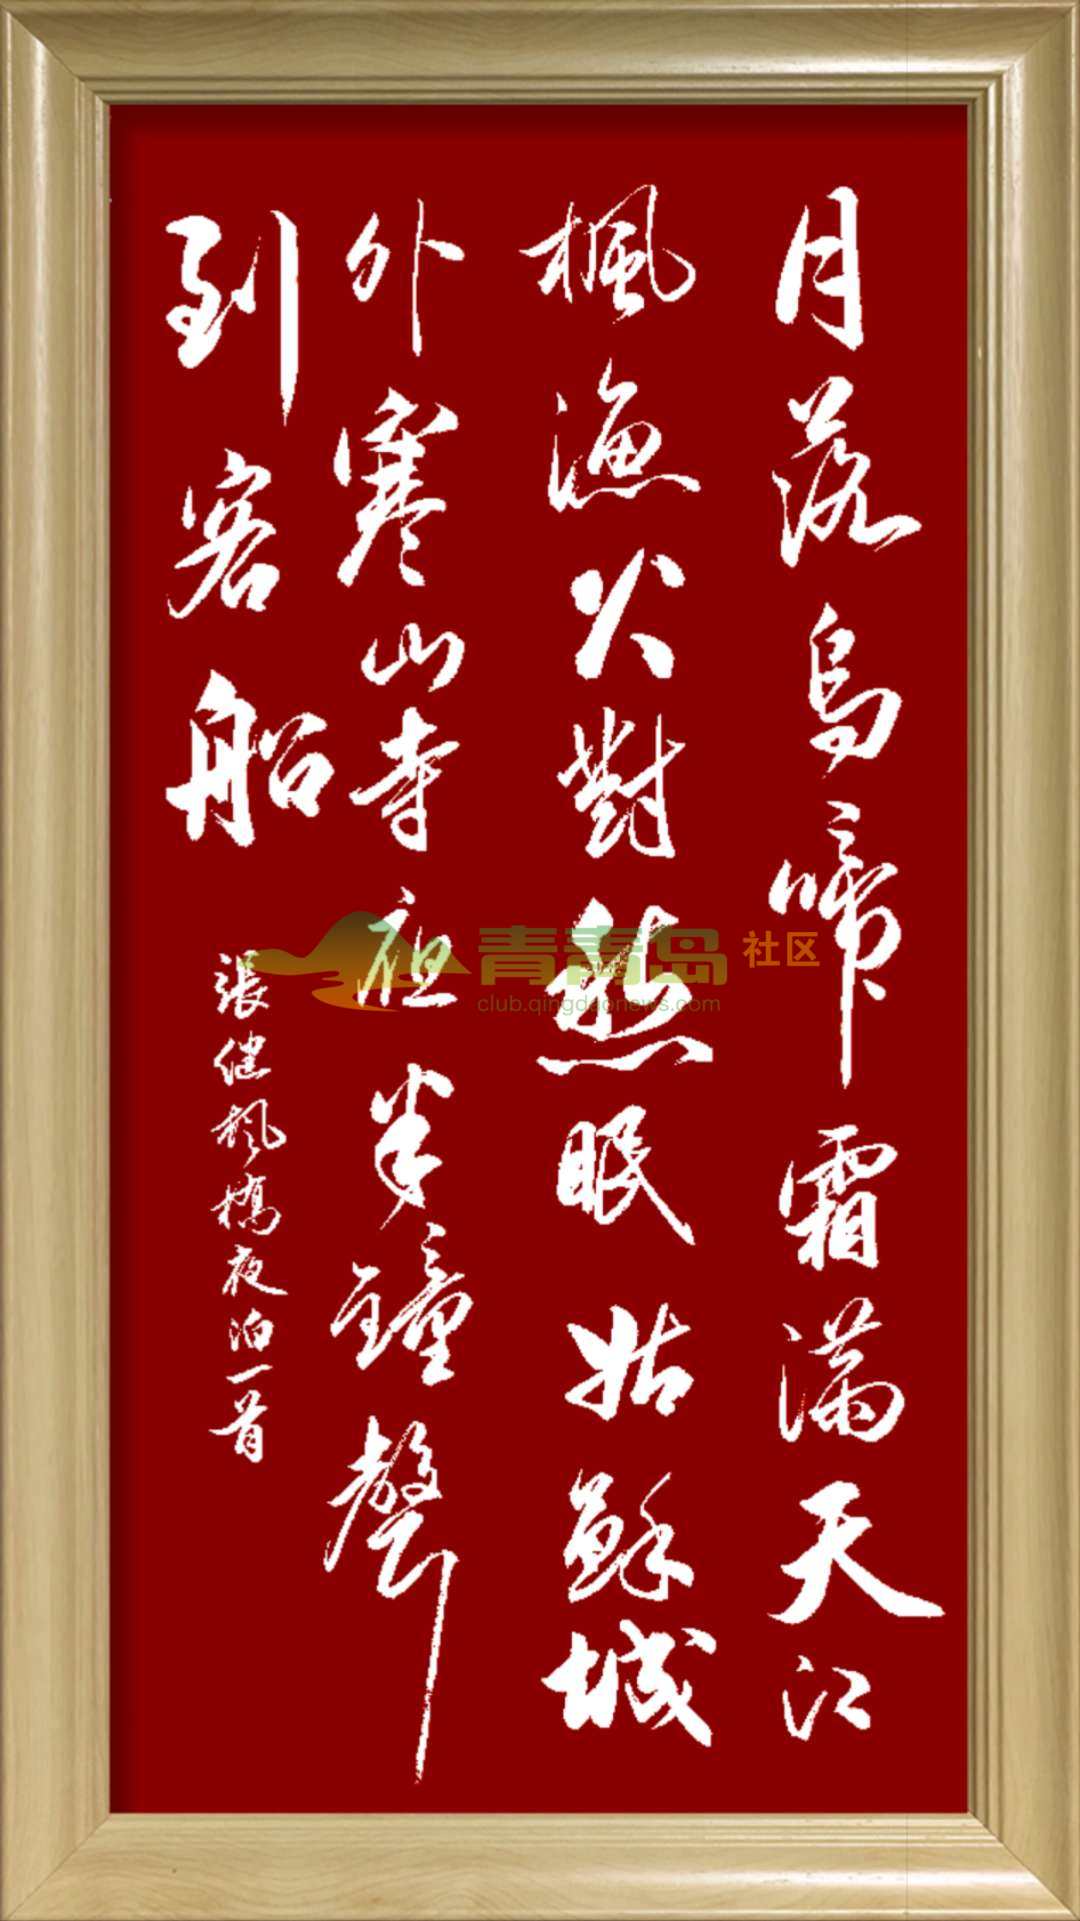 月落烏啼霜滿天江
楓漁火對愁眠姑蘇城
外寒山寺夜半鐘聲
到客船
張继楓橋夜泊一首
青青岛社区
club.qingdaonews.com